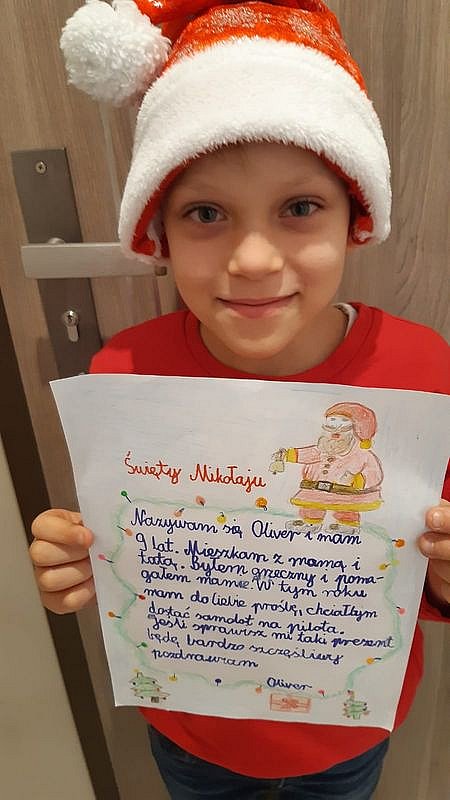 Święty Mikołaju
Nazywam się Oliver i mam
9 lat. Mieszkam z mamą i
tatą. Byłem grzeczny i poma-
gałem mamie. W tym roku
mam do Ciebie prośbę, chciałbym
dostać samolot na pilota.
Jeśli sprawisz mi taki prezent
będę bardzo szczęśliwy
pozdrawiam
Oliver